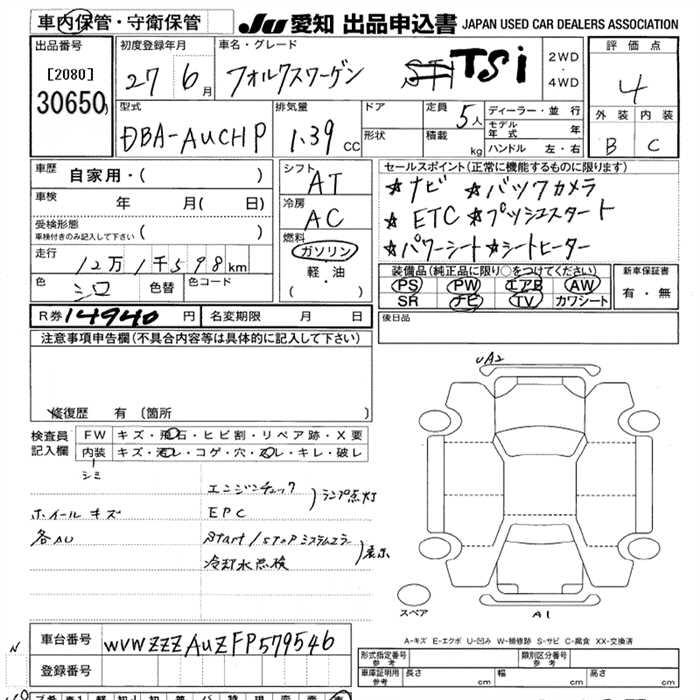 車内保管・守衛保管
JU 愛知 出品申込書 JAPAN USED CAR DEALERS ASSOCIATION
出品番号
[2080]
30650
初度登録年月
27 6月
車名・グレード
フォルクスワーゲン TSi
2WD・4WD
評価点
4
外装 内装
B C
型式
DBA-AUCHP
排気量
1.39 CC
ドア
形状
定員 5人
積載 kg
ディーラー・並行
モデル年式 年
ハンドル 左・右
車歴 自家用・( )
車検 年 月( 日)
受検形態
車検付きのみ記入して下さい ( )
走行 12万1千598km
色 シロ 色替 色コード
シフト AT
冷房 AC
燃料
ガソリン
軽・油
( ・ )
セールスポイント(正常に機能するものに限ります)
☆ナビ ☆バックカメラ
☆ETC ☆プッシュスタート
☆パワーシート ☆シートヒーター
装備品(純正品に限り○をつけてください)
PS PW エアB AW
SR ナビ TV カワシート
新車保証書
有・無
R券 14940 円 名変期限 月 日
後日品
注意事項申告欄(不具合内容等は具体的に記入して下さい)
修復歴 有 〔箇所 〕
検査員記入欄
FW キズ・飛石・ヒビ割・リペア跡・X要
内装 キズ・汚レ・コゲ・穴・スレ・キレ・破レ
シミ
エンジンチェック
EPC
ランプ点灯
ホイールキズ
各AU
Start/stopシステムエラー
冷却水点検
表示
UA2
A1
スペア
A-キズ E-エクボ U-凹み W-補修跡 S-サビ C-腐食 XX-交換済
車台番号 WVWZZZAUZFP579546
登録番号
形式指定番号 参考
類別区分番号 参考
車庫証明用 参考
長さ cm 幅 cm 高さ cm